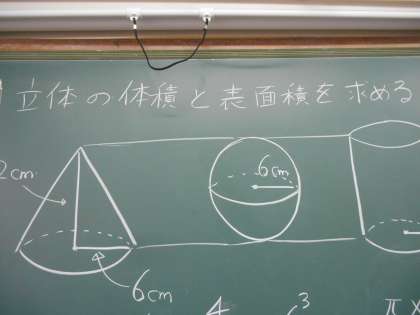 立体の体積と表面積を求める
2cm
6cm
6cm
4
3
π×